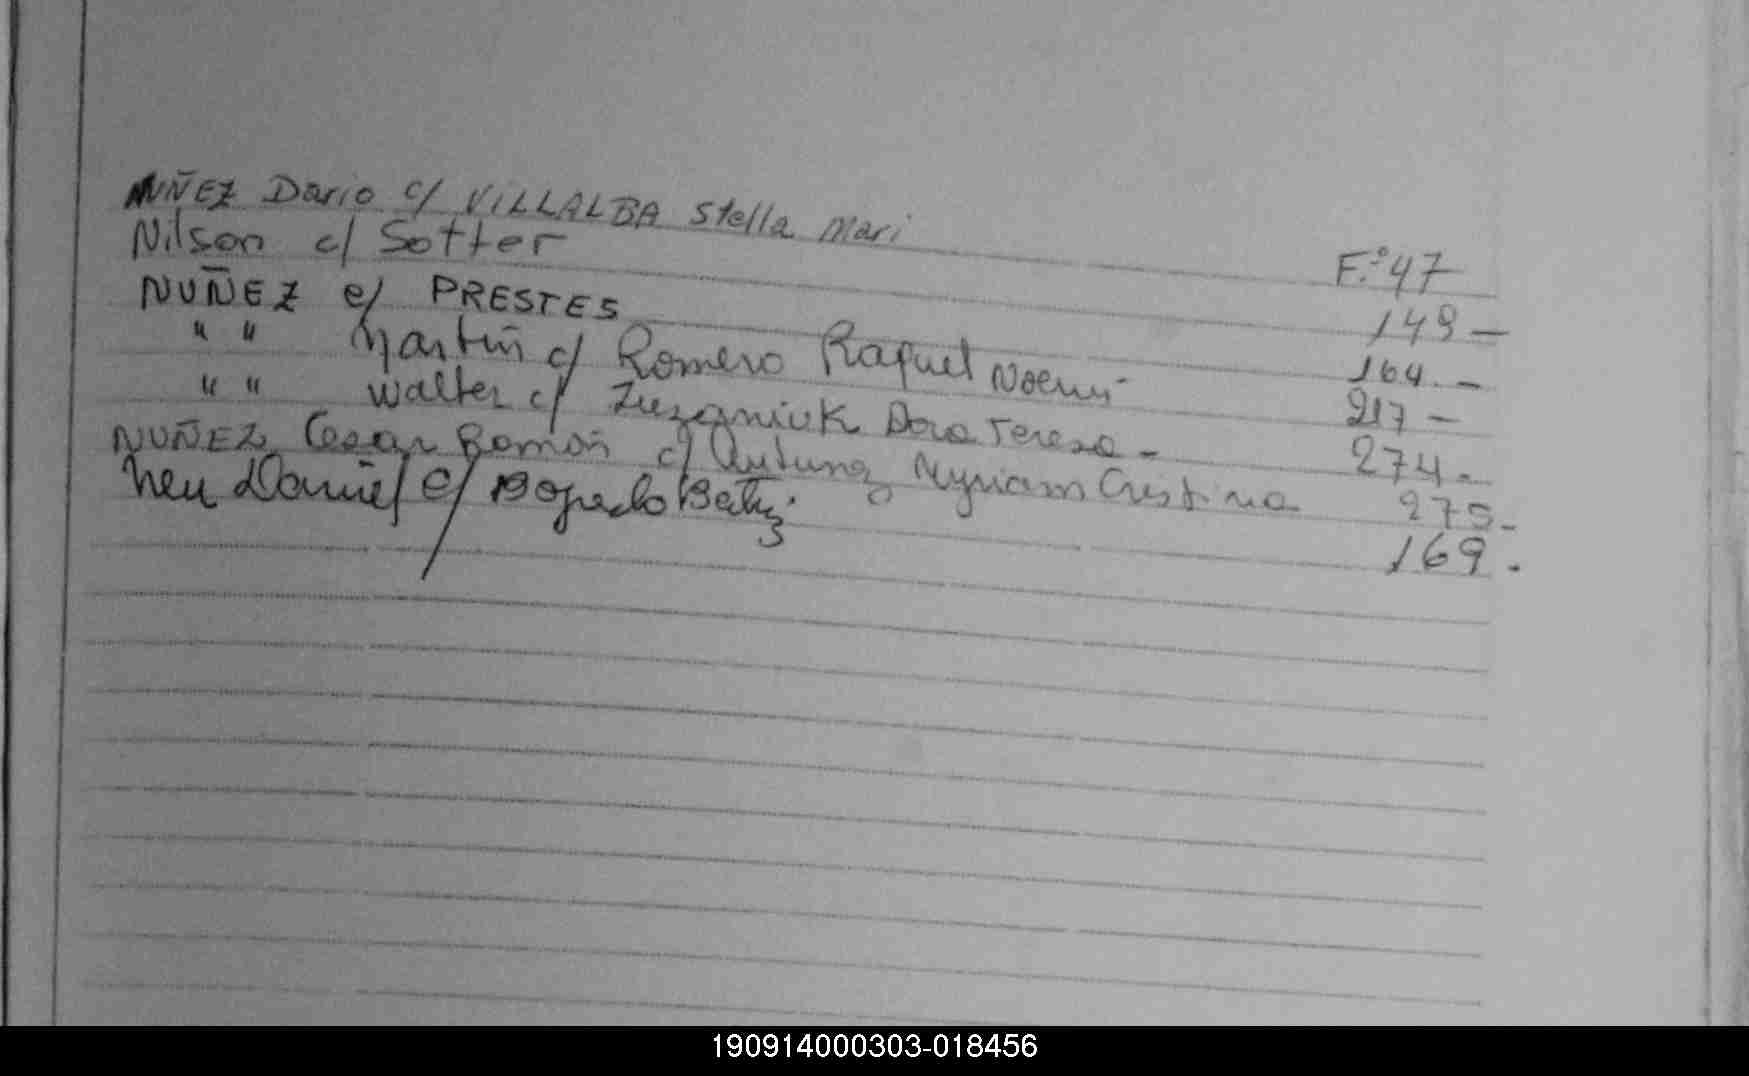 NUÑEZ Dario c/ VILLALBA Stella Mari F.º 47
Nilson c/ Sotter 149 —
NUÑEZ c/ PRESTES 164. —
" " Martin c/ Romero Raquel Noemi 217 —
" " Walter c/ Dora Teresa - 274 -
NUÑEZ Cesar Ramon c/ Antunez Myriam Cristina 275 -
Neu Daniel c/ Beatriz 169 .
190914000303-018456